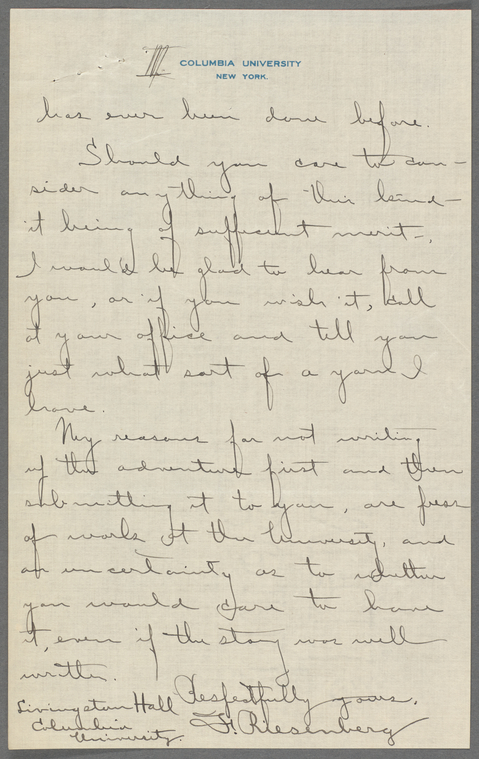 III
COLUMBIA UNIVERSITY
NEW YORK.
has ever been done before.
Should you care to con-
sider anything of this kind—
it being of sufficient merit—,
I would be glad to hear from
you, or if you wish it, call
at your office and tell you
just what sort of a yarn I
have.
My reasons for not writing
up the adventure first and then
submitting it to you, are press
of work at the University, and
an uncertainty as to whether
you would care to have
it, even if the story was well
written.
Respectfully yours,
F. Riesenberg
Livingston Hall
Columbia
University.